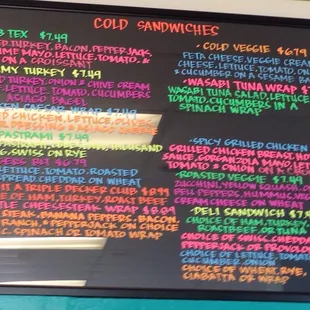 COLD SANDWICHES
B TEX $7.49
TURKEY, BACON, PEPPERJACK,
MAYO, LETTUCE, TOMATO, &
ON A CROISSANT
MY TURKEY $7.49
ONION & CHIVE CREAM
LETTUCE, TOMATO, CUCUMBERS
ASIAGO BAGEL
CAESAR WRAP $7.49
CHICKEN, LETTUCE,
PASTRAMI $7.49
SWISS ON RYE
BLT $6.79
LETTUCE, TOMATO, ROASTED
SPREAD, CHEDDAR ON WHEAT
IT A TRIPLE DECKER ADD
OF HAM, TURKEY, ROAST BEEF
CHEESESTEAK WRAP $8.89
STEAK, BANANA PEPPERS, BACON,
RANCH & PEPPERJACK ON CHOICE
SPINACH OR TOMATO WRAP
• COLD VEGGIE $6.79
FETA CHEESE, VEGGIE CREAM
CHEESE, LETTUCE, TOMATO, ON
& CUCUMBER ON A SESAME BA
• WASABI TUNA WRAP $7
WASABI TUNA SALAD, LETTUCE
TOMATO, CUCUMBERS IN A
SPINACH WRAP
• SPICY GRILLED CHICKEN
GRILLED CHICKEN BREAST, HO
SAUCE, GORGONZOLA, MAYO, LET
TOMATO & ONION ON
• ROASTED VEGGIE $7.49
ZUCCHINI, YELLOW SQUASH, ON
BELL PEPPERS, HUMMUS, VEG
CREAM CHEESE ON WHEAT
• DELI SANDWICH $7.
CHOICE OF HAM, TURKEY,
ROASTBEEF, OR TUNA
CHOICE OF SWISS, CHEDDA
PEPPERJACK OR PROVOLO
CHOICE OF LETTUCE, TOMAT
CUCUMBER, ONION
CHOICE OF WHEAT, RYE,
CIABATTA OR WRAP